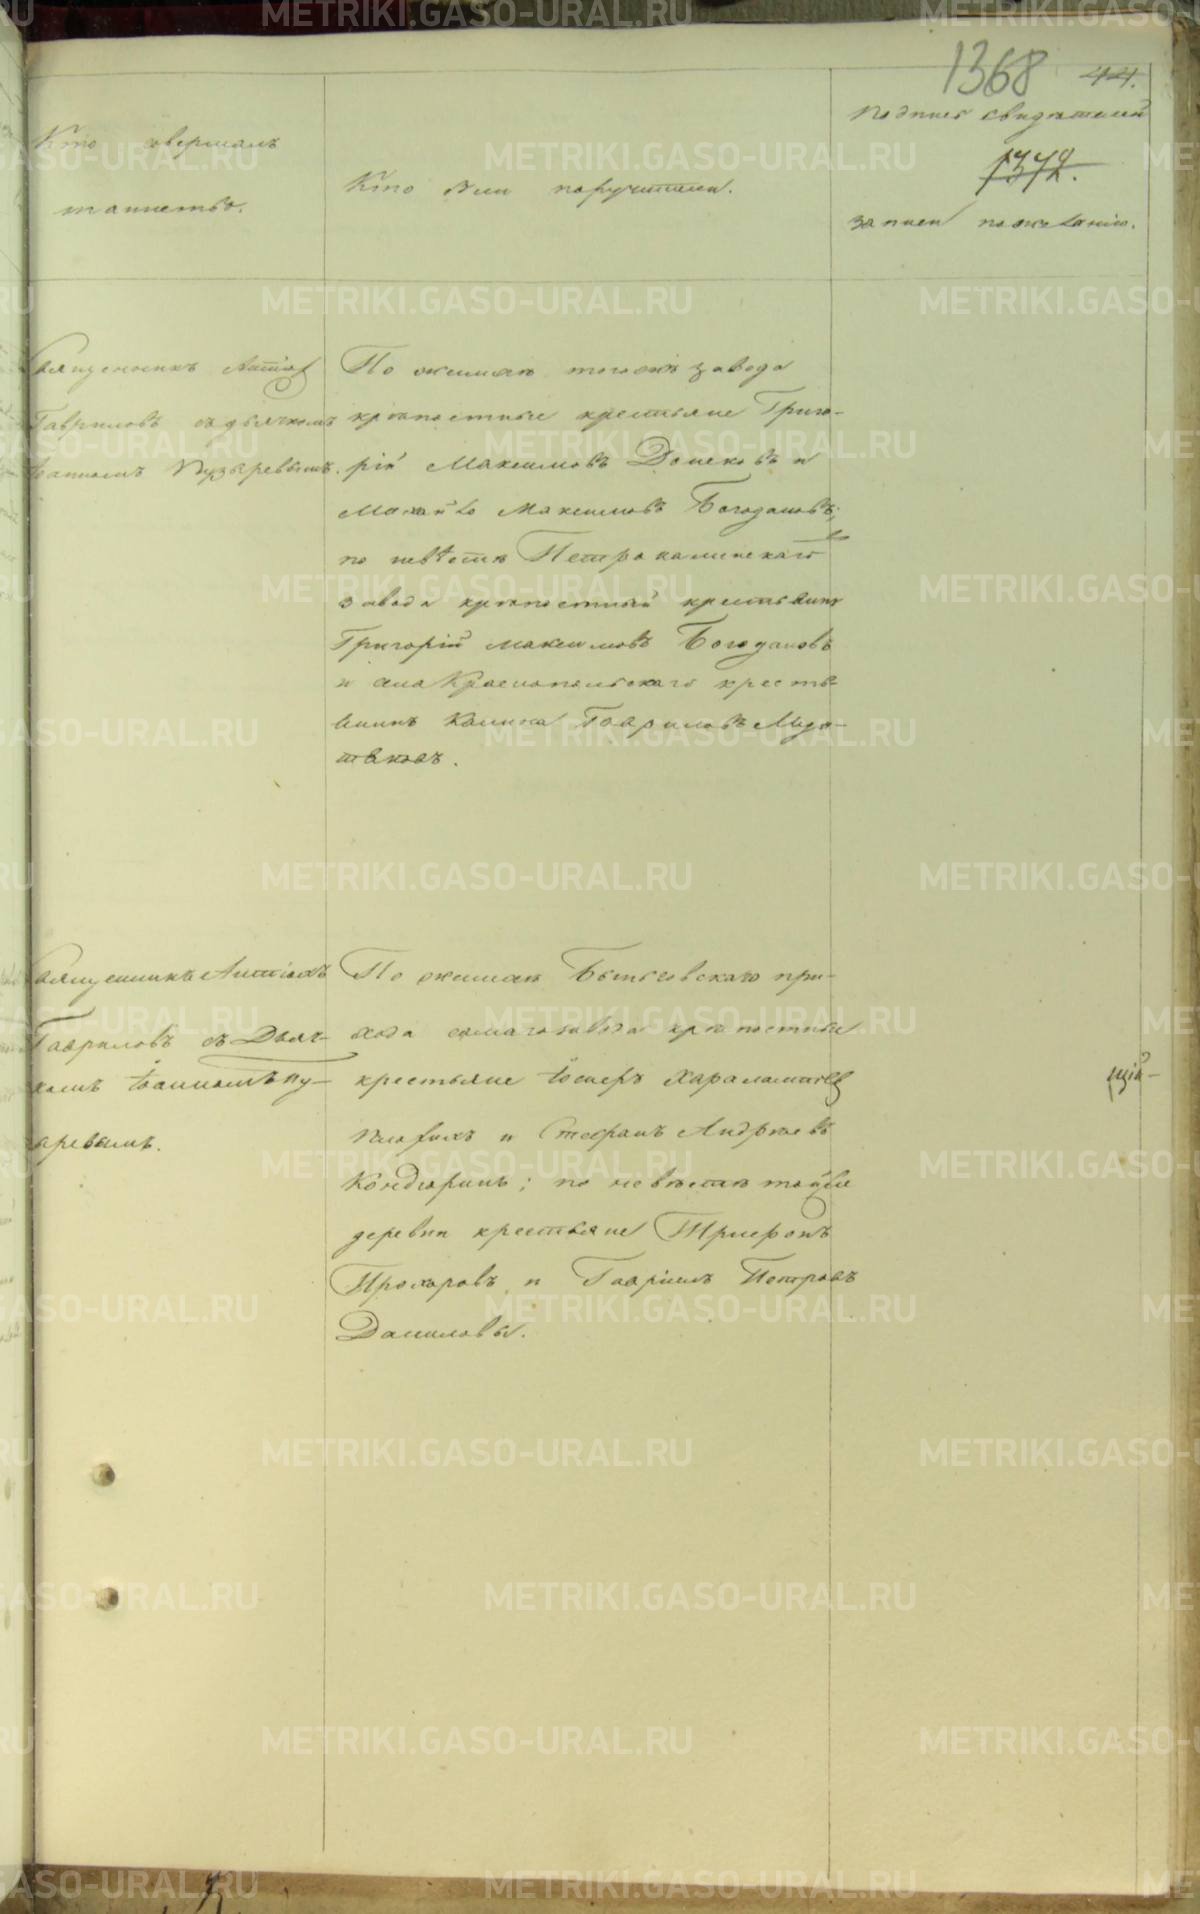 1368 44.
Кто совершалъ
таинство.
Кто были поручители.
Подпись свидѣтелей
1372.
записи по желанію.
Священникъ Антіох
Гавриловъ съ дьячкомъ
Іоанномъ Пузыревымъ.
По женихѣ тогожъ завода
крѣпостные крестьяне Григо-
рій Максимовъ Донсковъ и
Максимовъ Богодановъ;
по невѣстѣ Петрокаменскаго
завода крѣпостный крестьянинъ
Григорій Максимовъ Богодановъ
и села Краснопольскаго кресть-
янинъ Калина Гавриловъ Медо-
Священникъ Антіохъ
Гавриловъ съ Дьяч-
комъ Іоанномъ Пу-
зыревымъ.
По женихѣ Бынговскаго при-
хода самаго завода крѣпостные
крестьяне Іосифъ Харалампіев
и Стефанъ Андреевъ
Кондюринъ; по невѣстѣ тойже
деревни крестьяне Трифонъ
Прохоровъ и Гавріилъ Петровъ
Даниловы.
щій-
METRIKI.GASO-URAL.RU